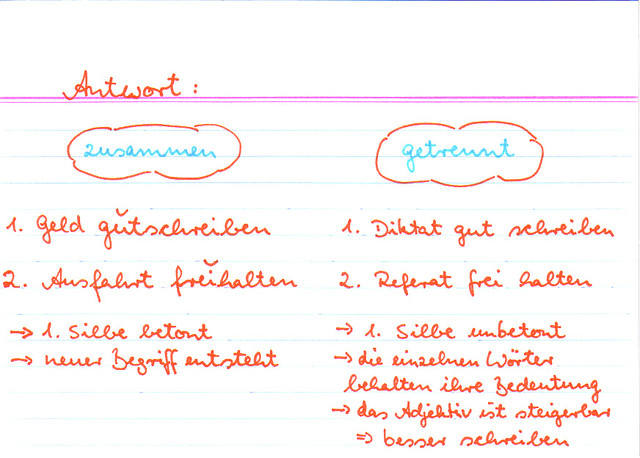 Antwort:
zusammen
1. Geld gutschreiben
2. Ausfahrt freihalten
→ 1. Silbe betont
→ neuer Begriff entsteht
getrennt
1. Diktat gut schreiben
2. Referat frei halten
→ 1. Silbe unbetont
→ die einzelnen Wörter
behalten ihre Bedeutung
→ das Adjektiv ist steigerbar
⇒ besser schreiben